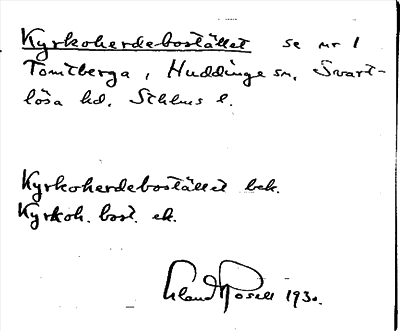 Kyrkoherdebostället se nr 1
Tomtberga, Huddinge sn, Svart-
lösa hd, Sthlms l.
Kyrkoherdebostället bek.
Kyrkoh. bost. ek.
1930.